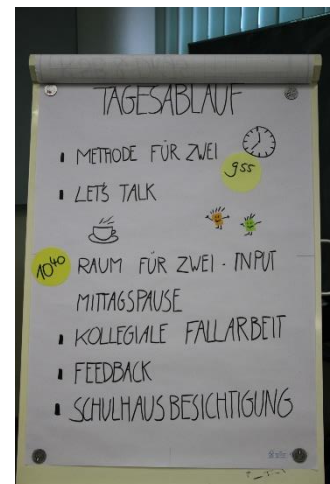 TAGESABLAUF
METHODE FÜR ZWEI
9⁵⁵
LET'S TALK
10⁴⁰
RAUM FÜR ZWEI - INPUT
MITTAGSPAUSE
KOLLEGIALE FALLARBEIT
FEEDBACK
SCHULHAUSBESICHTIGUNG